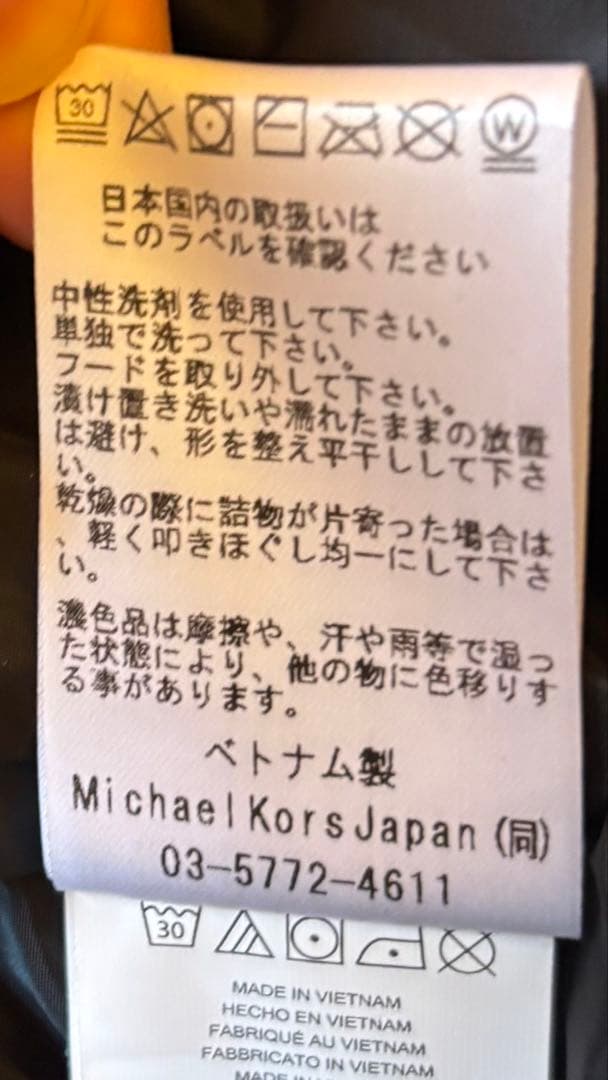 30
W
日本国内の取扱いは
このラベルを確認ください
中性洗剤を使用して下さい。
単独で洗って下さい。
フードを取り外して下さい。
漬け置き洗いや濡れたままの放置
は避け、形を整え平干しして下さ
い。
乾燥の際に詰物が片寄った場合は
、軽く叩きほぐし均一にして下さ
い。
濃色品は摩擦や、汗や雨等で湿っ
た状態により、他の物に色移りす
る事があります。
ベトナム製
Michael Kors Japan (同)
03-5772-4611
30
MADE IN VIETNAM
HECHO EN VIETNAM
FABRIQUÉ AU VIETNAM
FABBRICATO IN VIETNAM
MADE IN